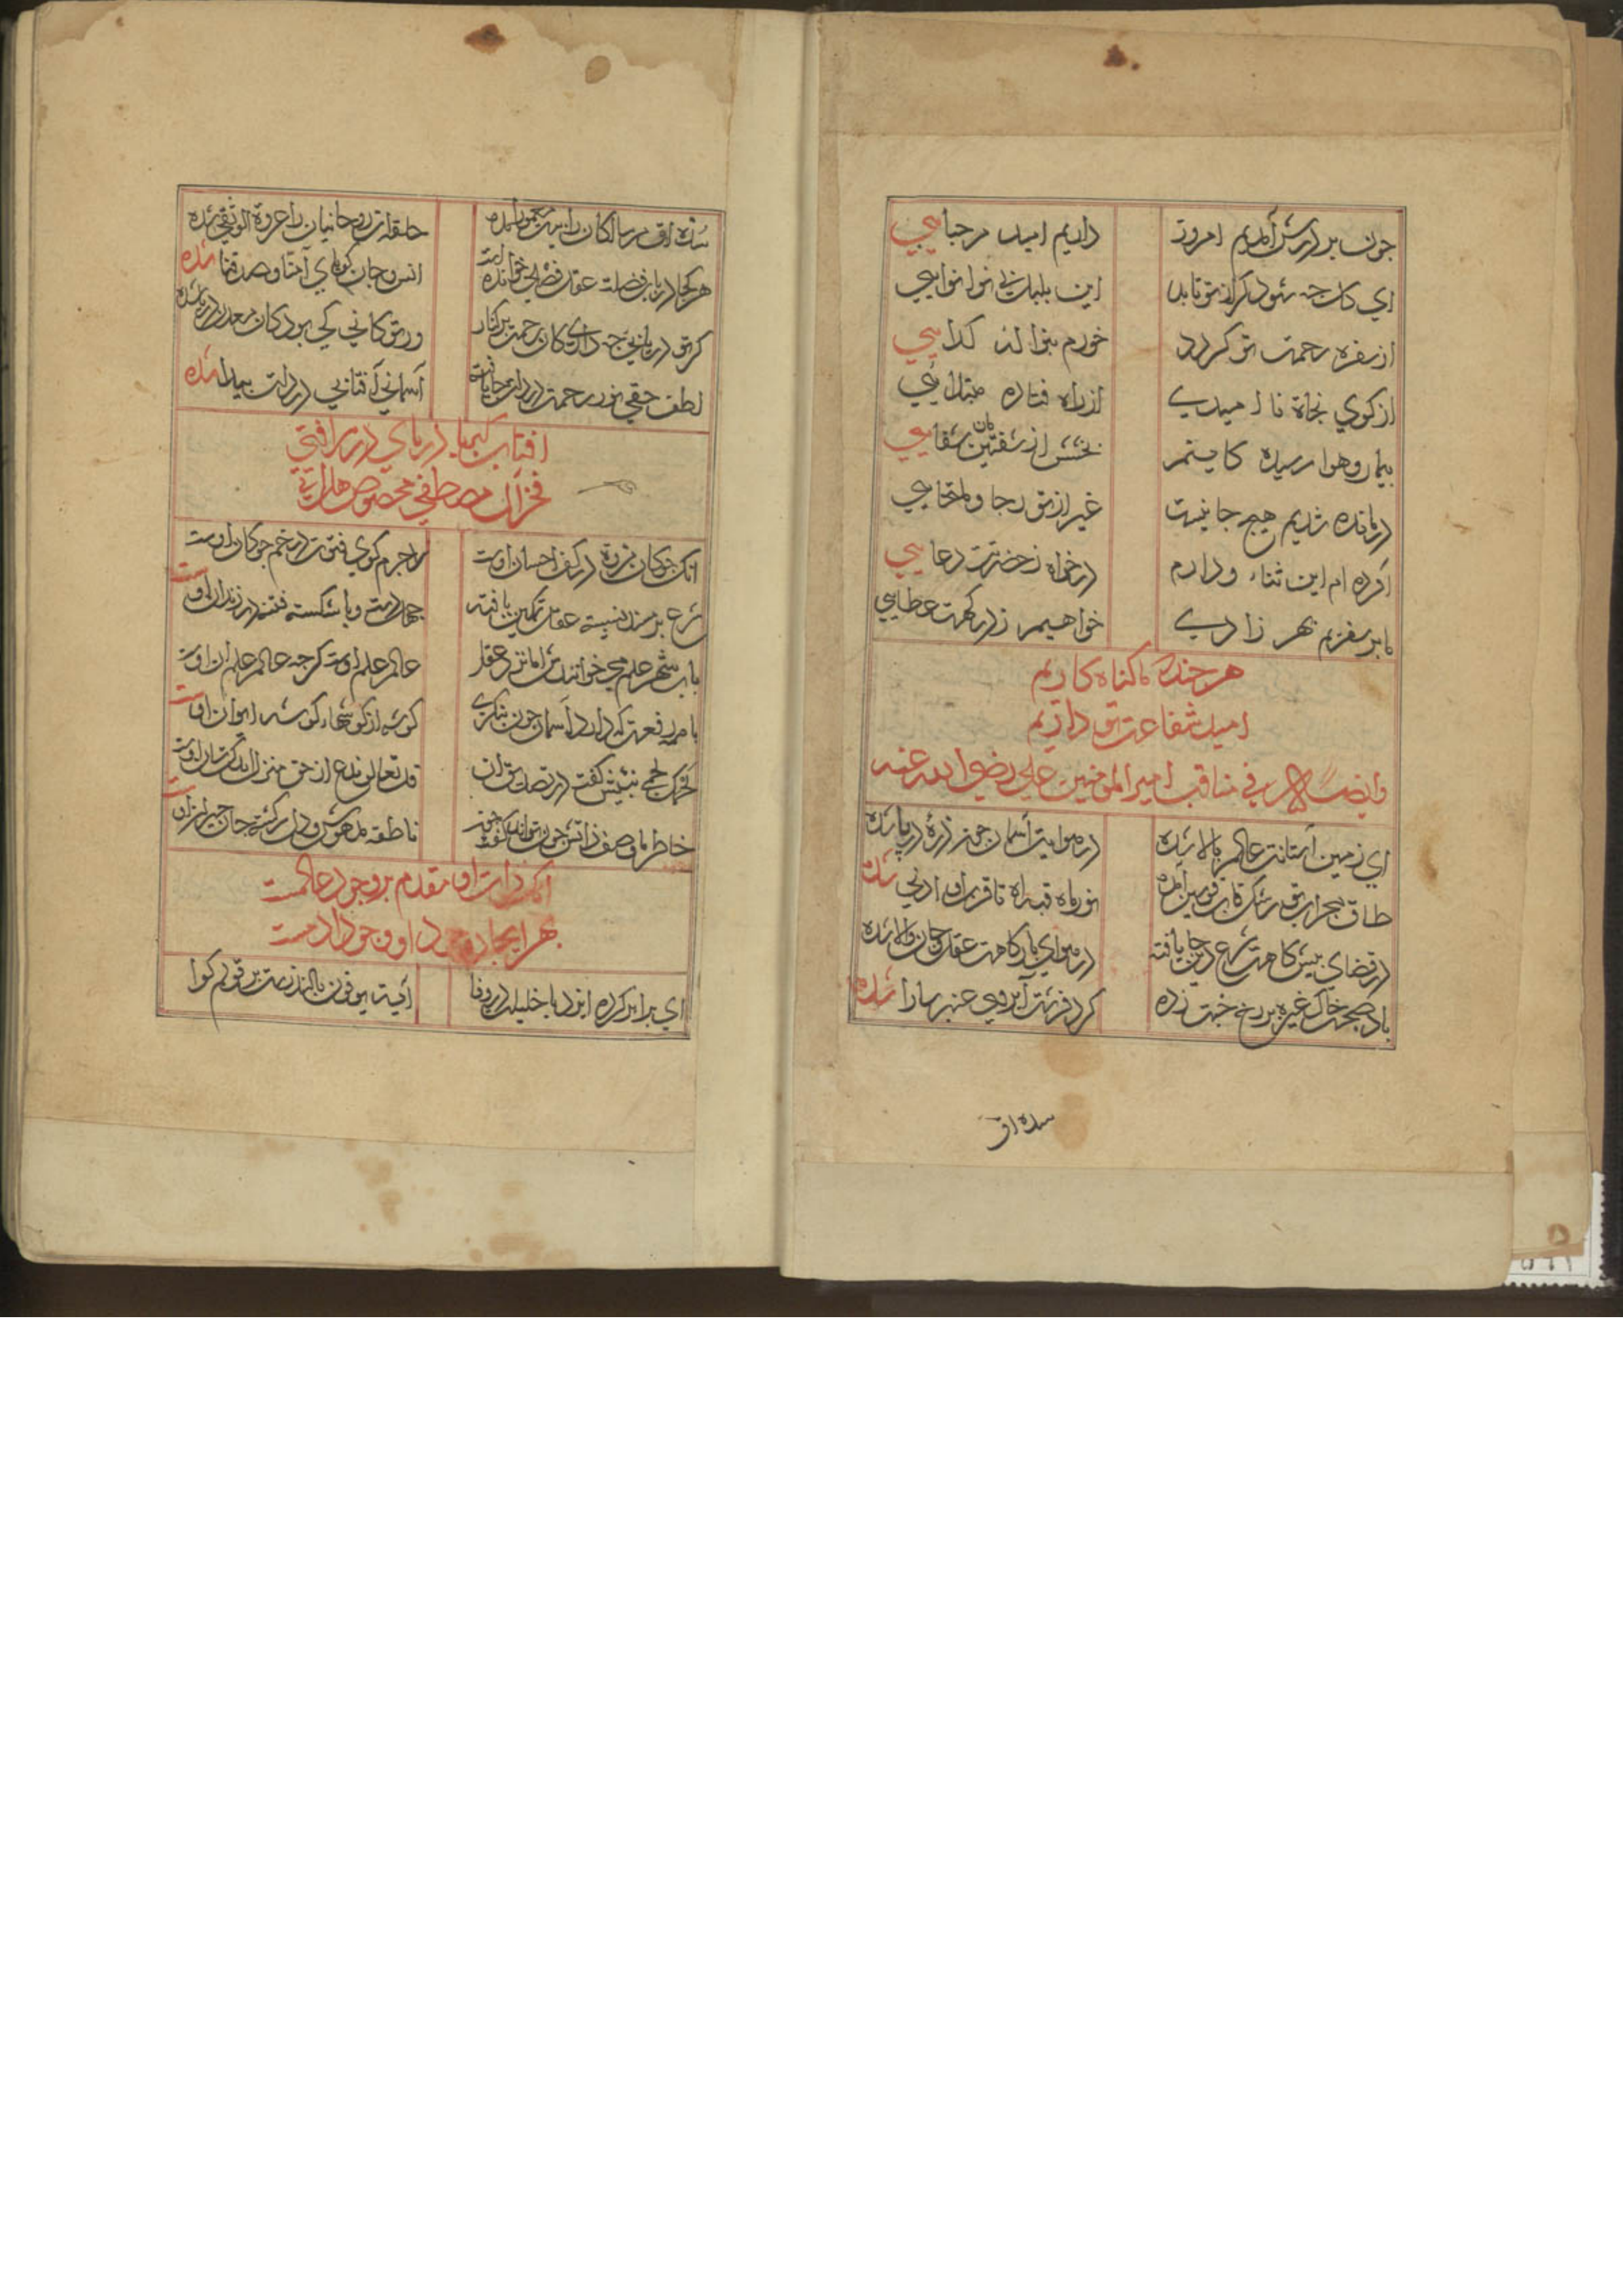 چون بر در تو آمدیم امروز داریم امید مرحبایی
ای کان چه شود کر از تو تابد این بلبل بی نوا نوایی
از سفره رحمت تو کردد خورم بنواله کدایی
از کوی نجاة نا امیدی از راه فتاده مبتلایی
بیمار و هوا رسیده کایتم بخشش از شفتین شفایی
درمانده شدیم هیچ جا نیست غیر از تو رجا و ملتجایی
آورده ام این ثناء و دارم درخواه ز حضرتت دعایی
ما بر سفریم بهر زادی خواهیم ز درکهت عطایی
هر چند که ما کناه کاریم
امید شفاعت تو داریم
وایضا له فی مناقب امیر المومنین علی رضی الله عنه
ای زمین آستانت عالم بالا شده در هوایت آسمان چون ذرۀ در پا شده
طاق محراب تو رشک قاب قوسین آمده نور ماه قبه ات تا قرب او ادنی شده
در فضای پیشکاهت شرع و دین جا یافته در هوای بارکاهت عقل و جان والا شده
باد صبحت خاک غیره بر رخ جنت زده کرد فرشت آبروی عنبر سارا شده
سده ات
سده ات مر سالکان را حلقه ات روحانیان را عروة الوثقی شده
هر کجا در باب فضلت عقل فصلی خوانده است انس و جان کویای آمنا و صدقنا شده
کر تو دریایی چه داری کان رحمت بر کنار ور تو کانی کی بود کان معدن دریا شده
لطف حقی نور رحمت در دلت جا یافته آسمانی آفتابی در دلت پیدا شده
افتاب کیمیا دریای در رافتی
فخر آل مصطفی مخصوص هل اتی
انک چوکان مروة در کف احسان اوست لاجرم کوی فتوت در خم چوکان اوست
شرع بر مسند نشسته عقل تمکین یافته جهل دست و پا شکسته فتنه در زندان اوست
باب شهر علم می خوانندش اما نزد عقل عالم علم اوست کرچه عالم علم ان اوست
با همه رفعت که دارد آسمان چون بنکری کوشه از کوشهاء کوشه ایوان اوست
لحمک لحمی نبیش کفت در تصدیق آن قل تعالوا ندع از حق منزل اندر شان اوست
خاطر ما وصف ذاتش چون تواند کفت چون ناطقه مدهوش و دل سرکشته جان حیران اوست
انک ذات او مقدم بر وجود عالمست
بهر ایجاد وجود او وجود ادمست
ای برابر کرده ایزد با خلیلت در وفا آیت یوفون بالنذرست بر قولم کوا